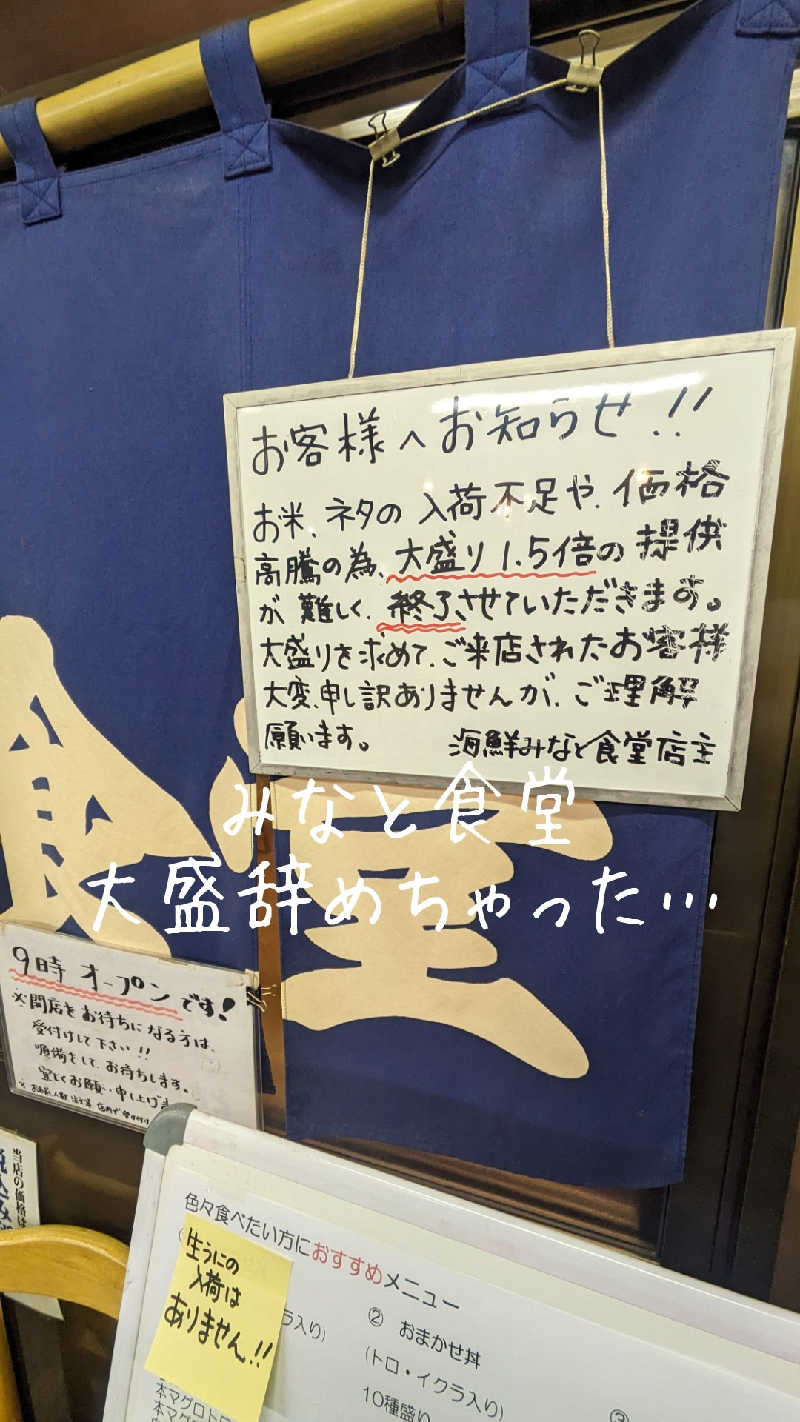 お客様へお知らせ!!
お米、ネタの入荷不足や、価格
高騰の為、大盛り1.5倍の提供
が難しく、終了させていただきます。
大盛りを求めて、ご来店されたお客様
大変、申し訳ありませんが、ご理解
願います。 海鮮みなと食堂店主
みなと食堂
大盛辞めちゃった…
食堂
9時オープンです!
※開店をお待ちになる方は、
受付けして下さい!!
準備をして、お待ちします。
宜しくお願い申し上げま
当店の価格は
色々食べたい方におすすめメニュー
生うにの
入荷は
ありません!!
ラ入り)
② おまかせ丼
(トロ・イクラ入り)
10種盛り
本マグロト
本マグロ
③